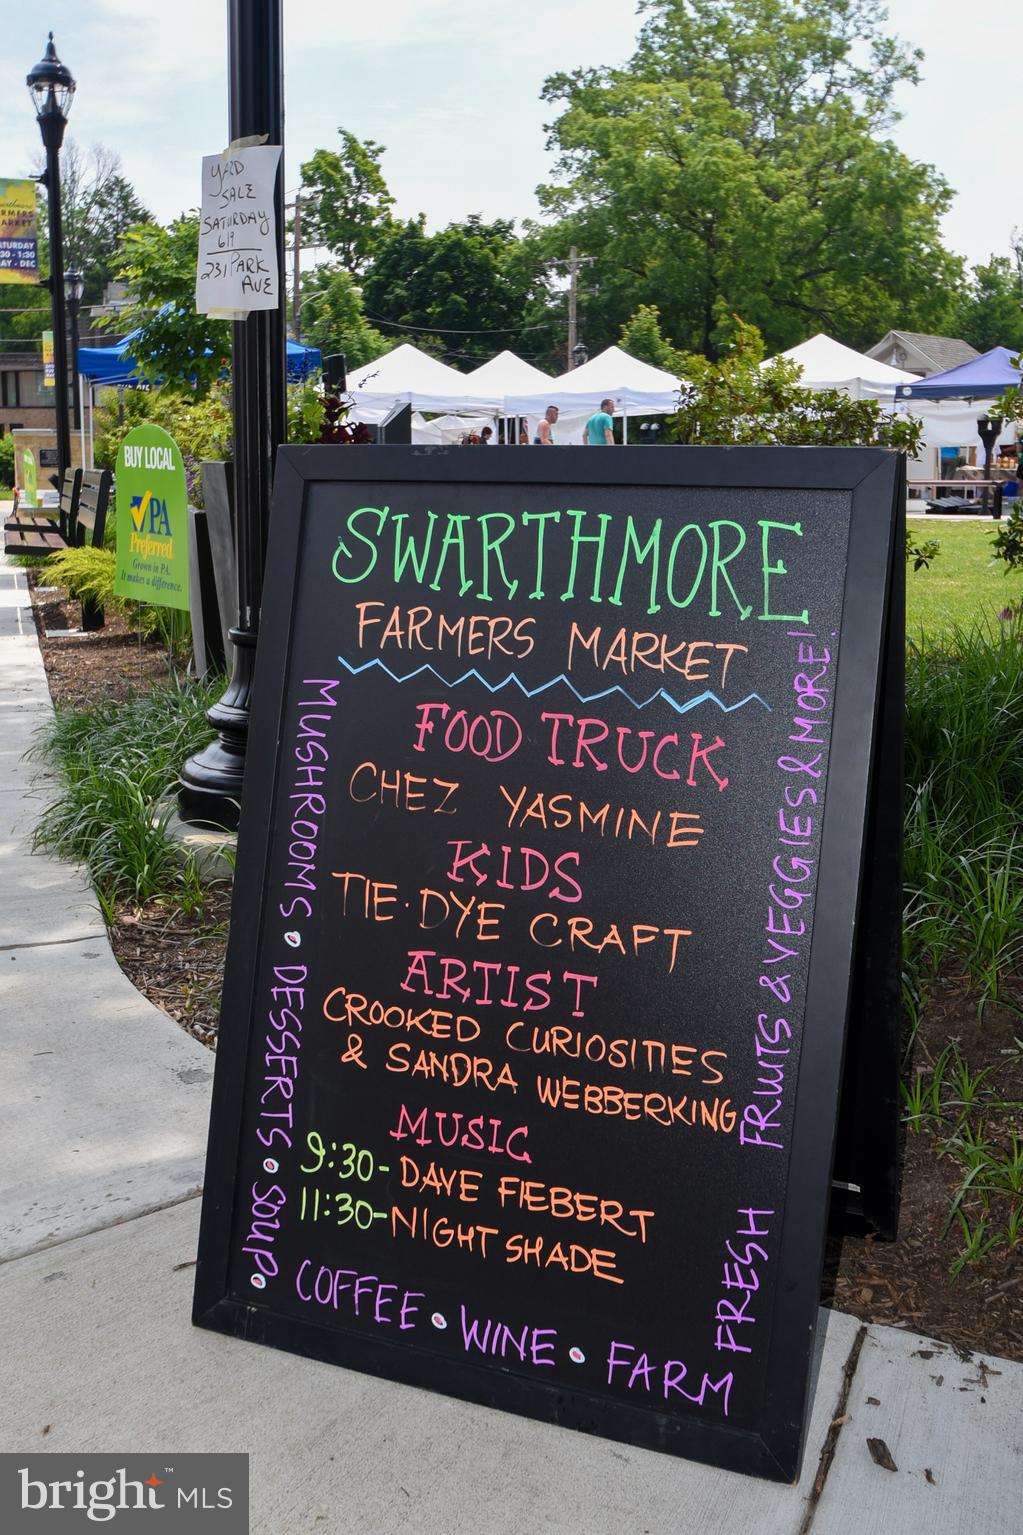 YARD
SALE
SATURDAY
6/9
231 PARK
AVE
Swarthmore
FARMERS
MARKET
SATURDAY
BUY LOCAL
PA
Preferred
Grown in PA.
It makes a difference.
SWARTHMORE
FARMERS MARKET
FOOD TRUCK
CHEZ YASMINE
KIDS
TIE·DYE CRAFT
ARTIST
CROOKED CURIOSITIES
& SANDRA WEBBERKING
MUSIC
9:30- DAVE FIEBERT
11:30- NIGHT SHADE
MUSHROOMS • DESSERTS • SOUP •
COFFEE • WINE • FARM
FRESH FRUITS & VEGGIES & MORE!
bright™ MLS